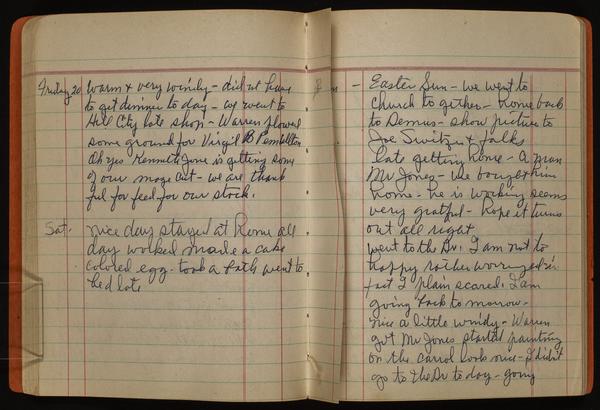 Friday 20 Warm & very windy - did not have
to get dinner to day - we went to
Hill City late shop - Warren plowed
some ground for Virgil B Pembleton
Oh yes Kenneth Jone is getting some
of our maze cut - we are thank
ful for feed for our stock.
Sat. nice day stayed at home all
day worked made a cake
colored egg - took a bath went to
bed late
- Easter Sun - we went to
church to gether - home back
to Demus - show pictures to
Joe Switzer & folks
late getting home - a man
Mr Jones - we bought him
home - he is working seems
very gratful - hope it turns
out all right
went to the Dr. I am not to
happy rather worried in
fact I plain scared. I am
going back to morrow -
nice a little windy - Warren
got Mr Jones started painting
on the carrol looks nice - I didn't
go to the Dr to day - going